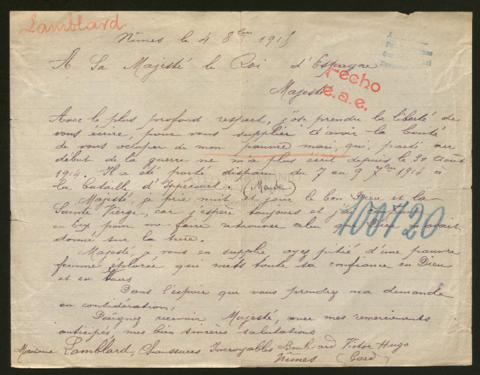 Lamblard
Nîmes le 4 8bre 1915
A Sa Majesté le Roi d'Espagne
hecho
e.a.e.
Majesté
Avec le plus profond respect, j'ose prendre la liberté de
vous écrire, pour vous supplier d'avoir la bonté
de vous occuper de mon pauvre mari, qui, parti au
début de la guerre ne m'a plus écrit depuis le 30 Août
1914. Il a été porté disparu du 7 au 9 7bre 1914 à
la bataille d'Ippécourt. (Meuse)
Majesté, je prie nuit et jour le bon Dieu et la
Sainte Vierge, car j'espère toujours et j'ai
en vous pour me faire retrouver celui que Dieu m'avait
donné sur la terre.
100720
Majesté, je vous en supplie ayez pitié d'une pauvre
femme éplorée qui mets toute sa confiance en Dieu
et en Vous
Dans l'espoir que vous prendrez ma demande
en considération,
Daignez recevoir Majesté, avec mes remerciements
anticipés mes bien sincères salutations
Madame Lamblard, Chaussures Incroyables Boulevard Victor Hugo
Nîmes (Gard)